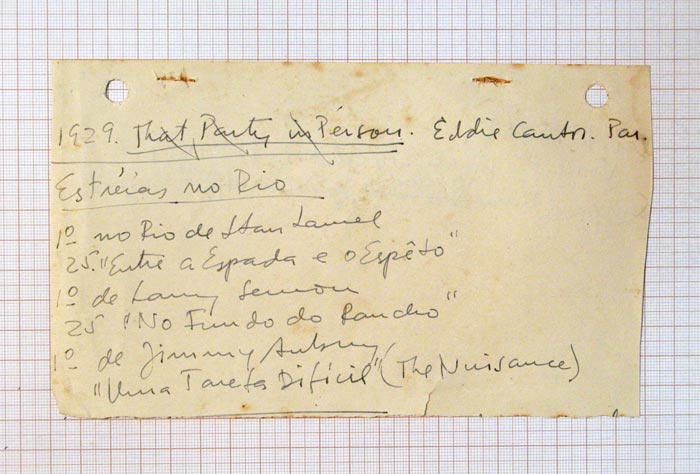 1929. That Party in Person. Eddie Cantor. Par.
Estréias no Rio
1º no Rio de Stan Laurel
25. "Entre a Espada e o Espêto"
1º de Larry Semon
25 "No Fundo do Rancho"
1º de Jimmy Aubrey
"Uma Tarefa Difícil" (The Nuisance)